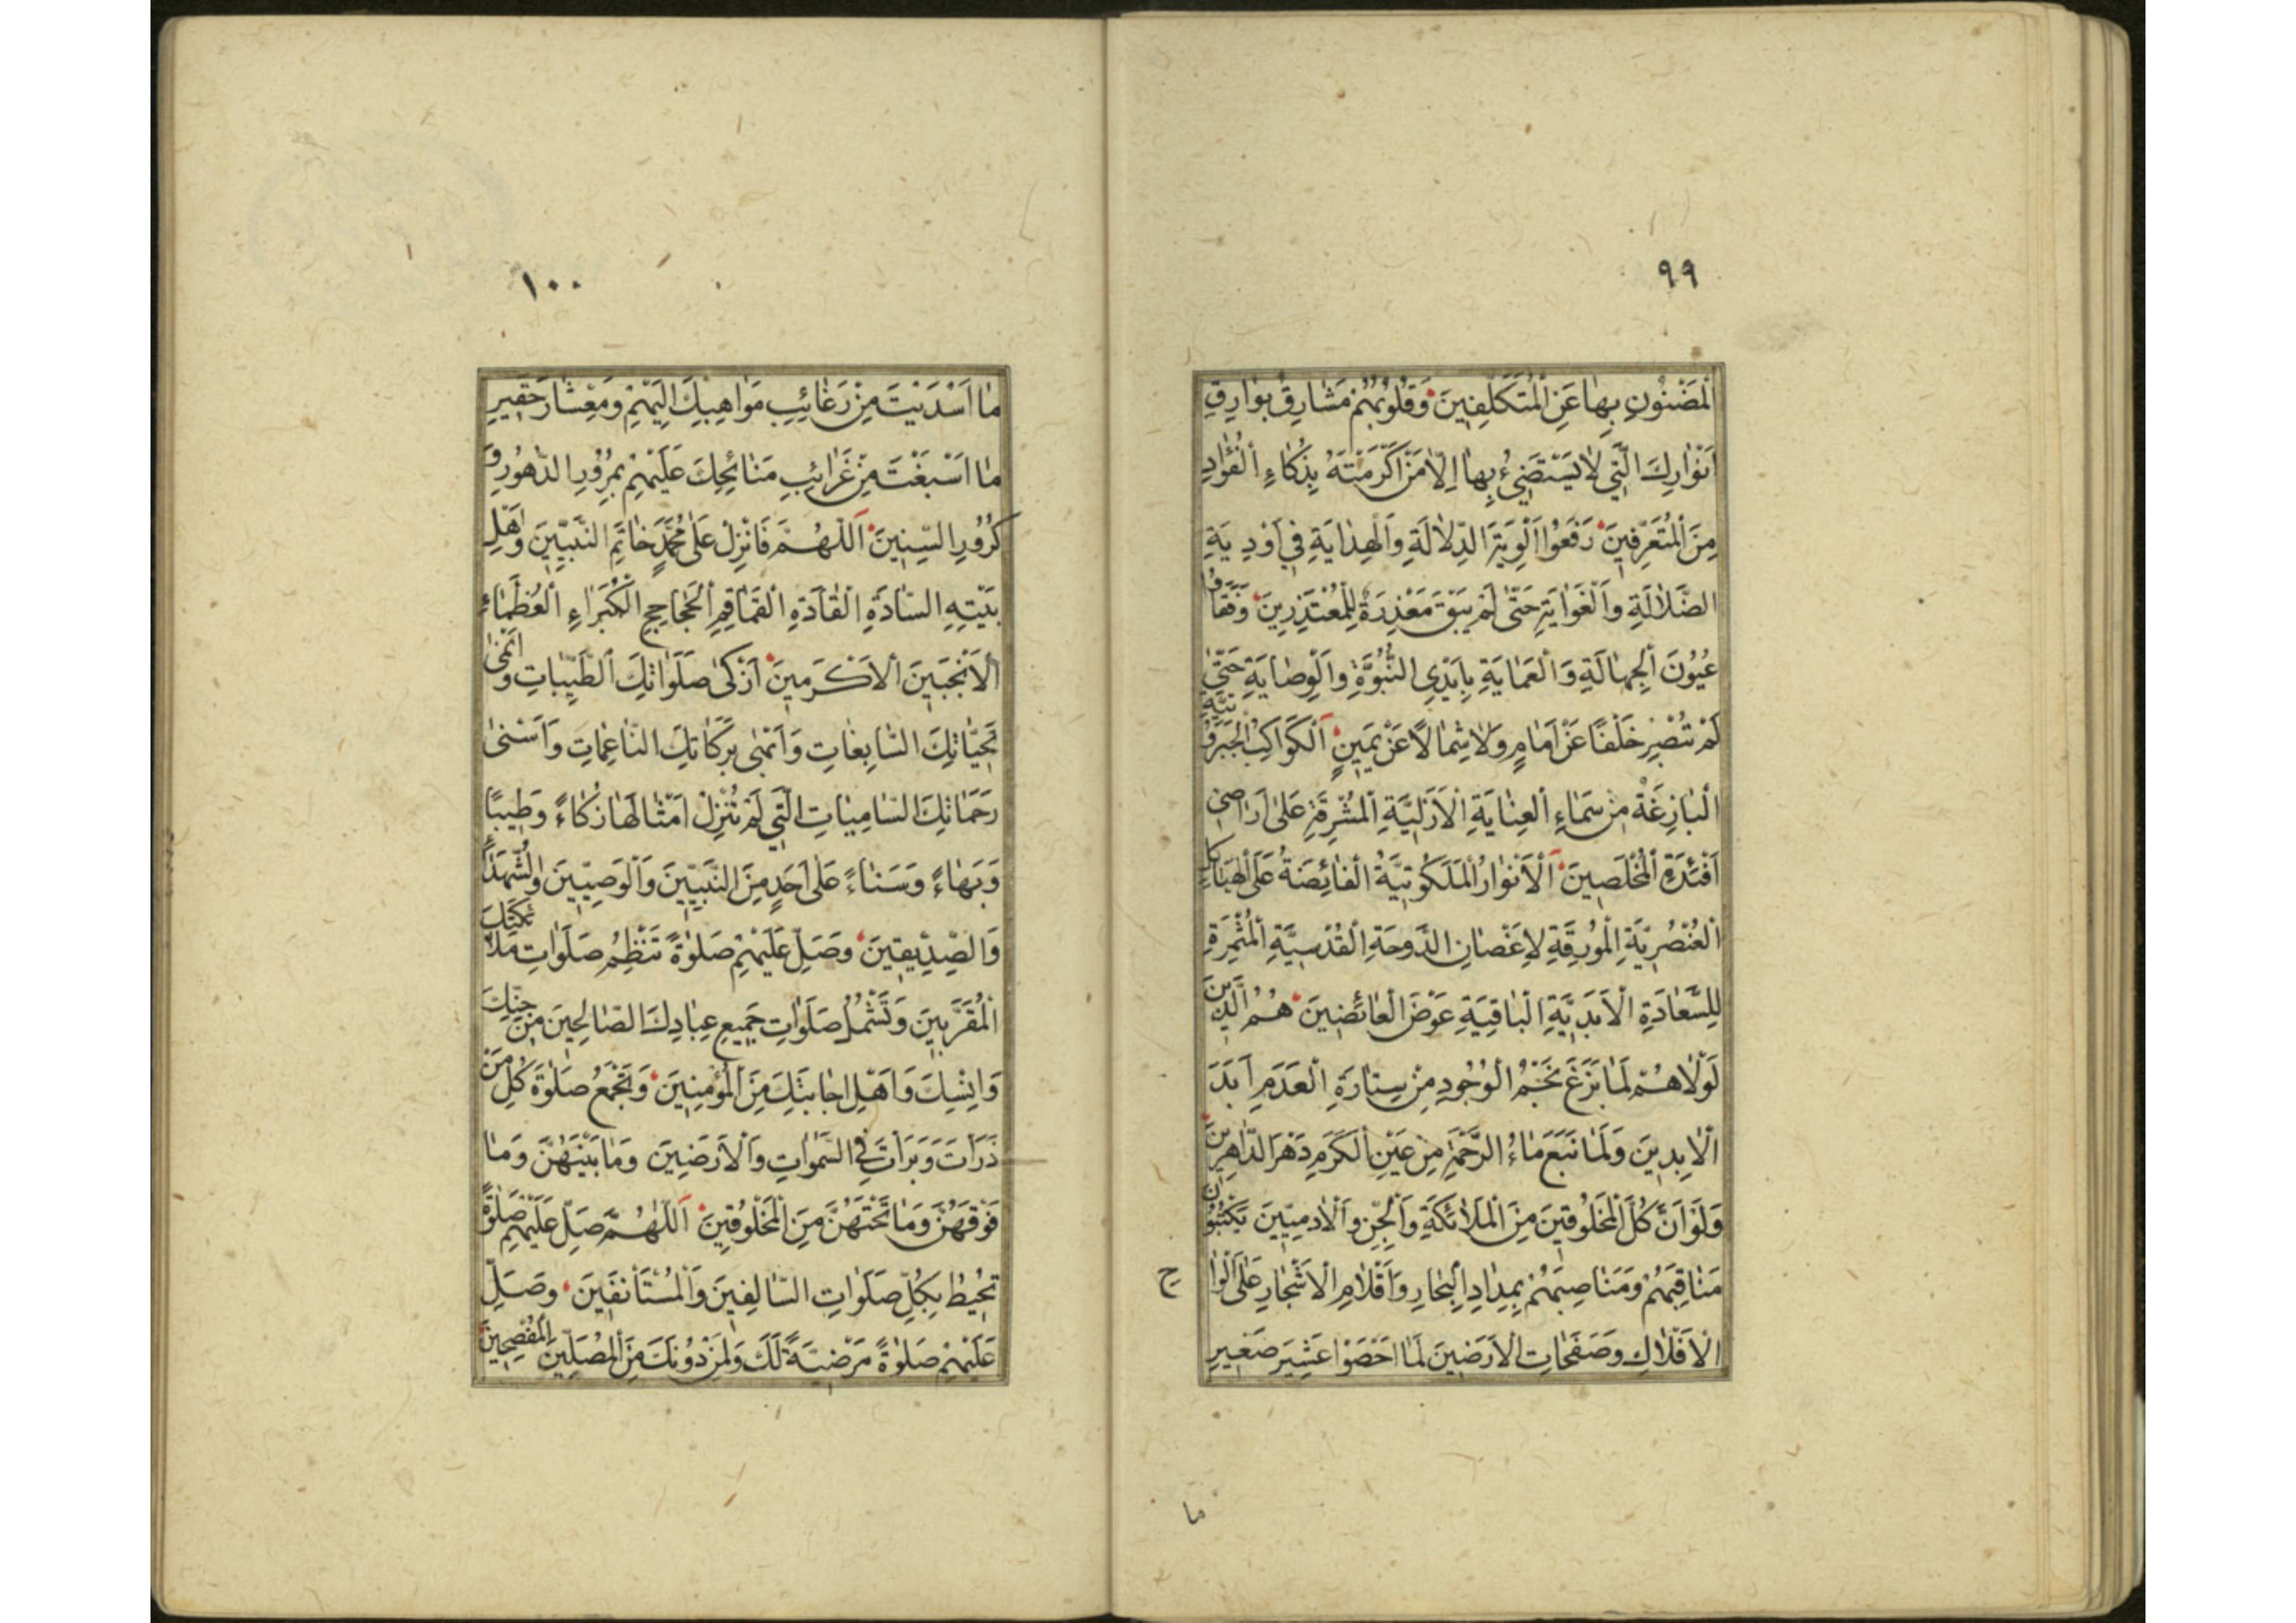 ٩٩
اَلْمَضْنُونِ بِهٰا عَنِ الْمُتَكَلِّفِينَ وَقُلُوبُهُمْ مَشٰارِقُ بَوٰارِقِ
اَنْوٰارِكَ الَّتِي لٰا يَسْتَضِيءُ بِهٰا اِلّٰا مَنْ اَكْرَمْتَهُ بِذَكٰاءِ الْفُؤٰادِ
مِنَ الْمُتَعَرِّفِينَ رَفَعُوا اَلْوِيَةَ الدِّلٰالَةِ وَالْهِدٰايَةِ فِي اَوْدِيَةِ
الضَّلٰالَةِ وَالْغَوٰايَةِ حَتّٰى لَمْ يَبْقَ مَعْذِرَةٌ لِلْمُعْتَذِرِينَ وَفَقَأُوا
عُيُونَ الْجِهٰالَةِ وَالْعَمٰايَةِ بِاَيْدِي النُّبُوَّةِ وَالْوِصٰايَةِ حَتّٰى
لَمْ تُبْصِرْ خَلْفًا عَنْ اَمٰامٍ وَلٰا شِمٰالًا عَنْ يَمِينٍ اَلْكَوٰاكِبُ الْجَبَرُوتِيَّةِ
الْبٰازِغَةُ مِنْ سَمٰاءِ الْعِنٰايَةِ الْاَزَلِيَّةِ الْمُشْرِقَةِ عَلٰى اَرٰاضِي
اَفْئِدَةِ الْمُخْلَصِينَ اَلْاَنْوٰارُ الْمَلَكُوتِيَّةُ الْفٰائِضَةُ عَلَى الْهَيٰاكِلِ
الْعُنْصُرِيَّةِ الْمُورِقَةِ لِاَغْصٰانِ الدَّوحَةِ الْقُدْسِيَّةِ الْمُثْمِرَةِ
لِلسَّعٰادَةِ الْاَبَدِيَّةِ الْبٰاقِيَةِ عَوْضَ الْعٰائِضِينَ هُمُ الَّذِينَ
لَوْلٰا هُمْ لَمٰا بَزَغَ نَجْمُ الْوُجُودِ مِنْ سِتٰارَةِ الْعَدَمِ اَبَدَ
الْاٰبِدِينَ وَلَمٰا نَبَعَ مٰاءُ الرَّحْمَةِ مِنْ عَيْنِ الْكَرَمِ دَهْرَ الدّٰاهِرِينَ
وَلَوْ اَنَّ كُلَّ الْمَخْلُوقِينَ مِنَ الْمَلٰائِكَةِ وَالْجِنِّ وَالْاٰدَمِيِّينَ يَكْتُبُونَ
مَنٰاقِبَهُمْ وَمَنٰاصِبَهُمْ بِمِدٰادِ الْبِحٰارِ وَاَقْلٰامِ الْاَشْجٰارِ عَلٰى اَلْوٰاح
الْاَفْلٰاكِ وَصَفَحٰاتِ الْاَرَضِينَ لَمٰا اَحْصَوْا عَشِيرَ صَغِيرِ
ما
١٠٠
مٰا اَسْدَيْتَ مِنْ رَغٰائِبِ مَوٰاهِبِكَ اِلَيْهِمْ وَمِعْشٰارَ حَقِيرِ
مٰا اَسْبَغْتَ مِنْ غَرٰائِبِ مَنٰائِحِكَ عَلَيْهِمْ بِمُرُورِ الدُّهُورِ وَ
كُرُورِ السِّنِينَ اَللّٰهُمَّ فَانْزِلْ عَلٰى مُحَمَّدٍ خٰاتَمِ النَّبِيِّينَ وَاَهْلِ
بَيْتِهِ السّٰادَةِ الْقٰادَةِ الْقَمٰاقِمِ الْجَحٰاجِحِ الْكُبَرٰاءِ الْعُظَمٰاءِ
الْاَنْجَبِينَ الْاَكْرَمِينَ اَزْكٰى صَلَوٰاتِكَ الطَّيِّبٰاتِ وَاَنْمٰى
تَحِيّٰاتِكَ السّٰابِغٰاتِ وَاَبْهٰى بَرَكٰاتِكَ النّٰاعِمٰاتِ وَاَسْنٰى
رَحَمٰاتِكَ السّٰامِيٰاتِ الَّتِي لَمْ تُنْزِلْ اَمْثٰالَهٰا زَكٰاءً وَطِيبًا
وَبَهٰاءً وَسَنٰاءً عَلٰى اَحَدٍ مِنَ النَّبِيِّينَ وَالْوَصِيِّينَ وَالشُّهَدٰاءِ
وَالصِّدِّيقِينَ وَصَلِّ عَلَيْهِمْ صَلٰوةً تَنْظِمُ صَلَوٰاتِ مَلٰائِكَتِكَ
الْمُقَرَّبِينَ وَتَشْمُلُ صَلَوٰاتِ جَمِيعِ عِبٰادِكَ الصّٰالِحِينَ مِنْ جِنِّكَ
وَاِنْسِكَ وَاَهْلِ اِجٰابَتِكَ مِنَ الْمُؤْمِنِينَ وَتَجْمَعُ صَلٰوةَ كُلِّ مَنْ
ذَرَاْتَ وَبَرَاْتَ فِي السَّمٰوٰاتِ وَالْاَرَضِينَ وَمٰا بَيْنَهُنَّ وَمٰا
فَوْقَهُنَّ وَمٰا تَحْتَهُنَّ مِنَ الْمَخْلُوقِينَ اَللّٰهُمَّ صَلِّ عَلَيْهِمْ صَلٰوةً
تُحِيطُ بِكُلِّ صَلَوٰاتِ السّٰالِفِينَ وَالْمُسْتَأْنَفِينَ وَصَلِّ
عَلَيْهِمْ صَلٰوةً مَرْضِيَّةً لَكَ وَلِمَنْ دُونَكَ مِنَ الْمُصَلِّينَ الْمُفْصِحِينَ